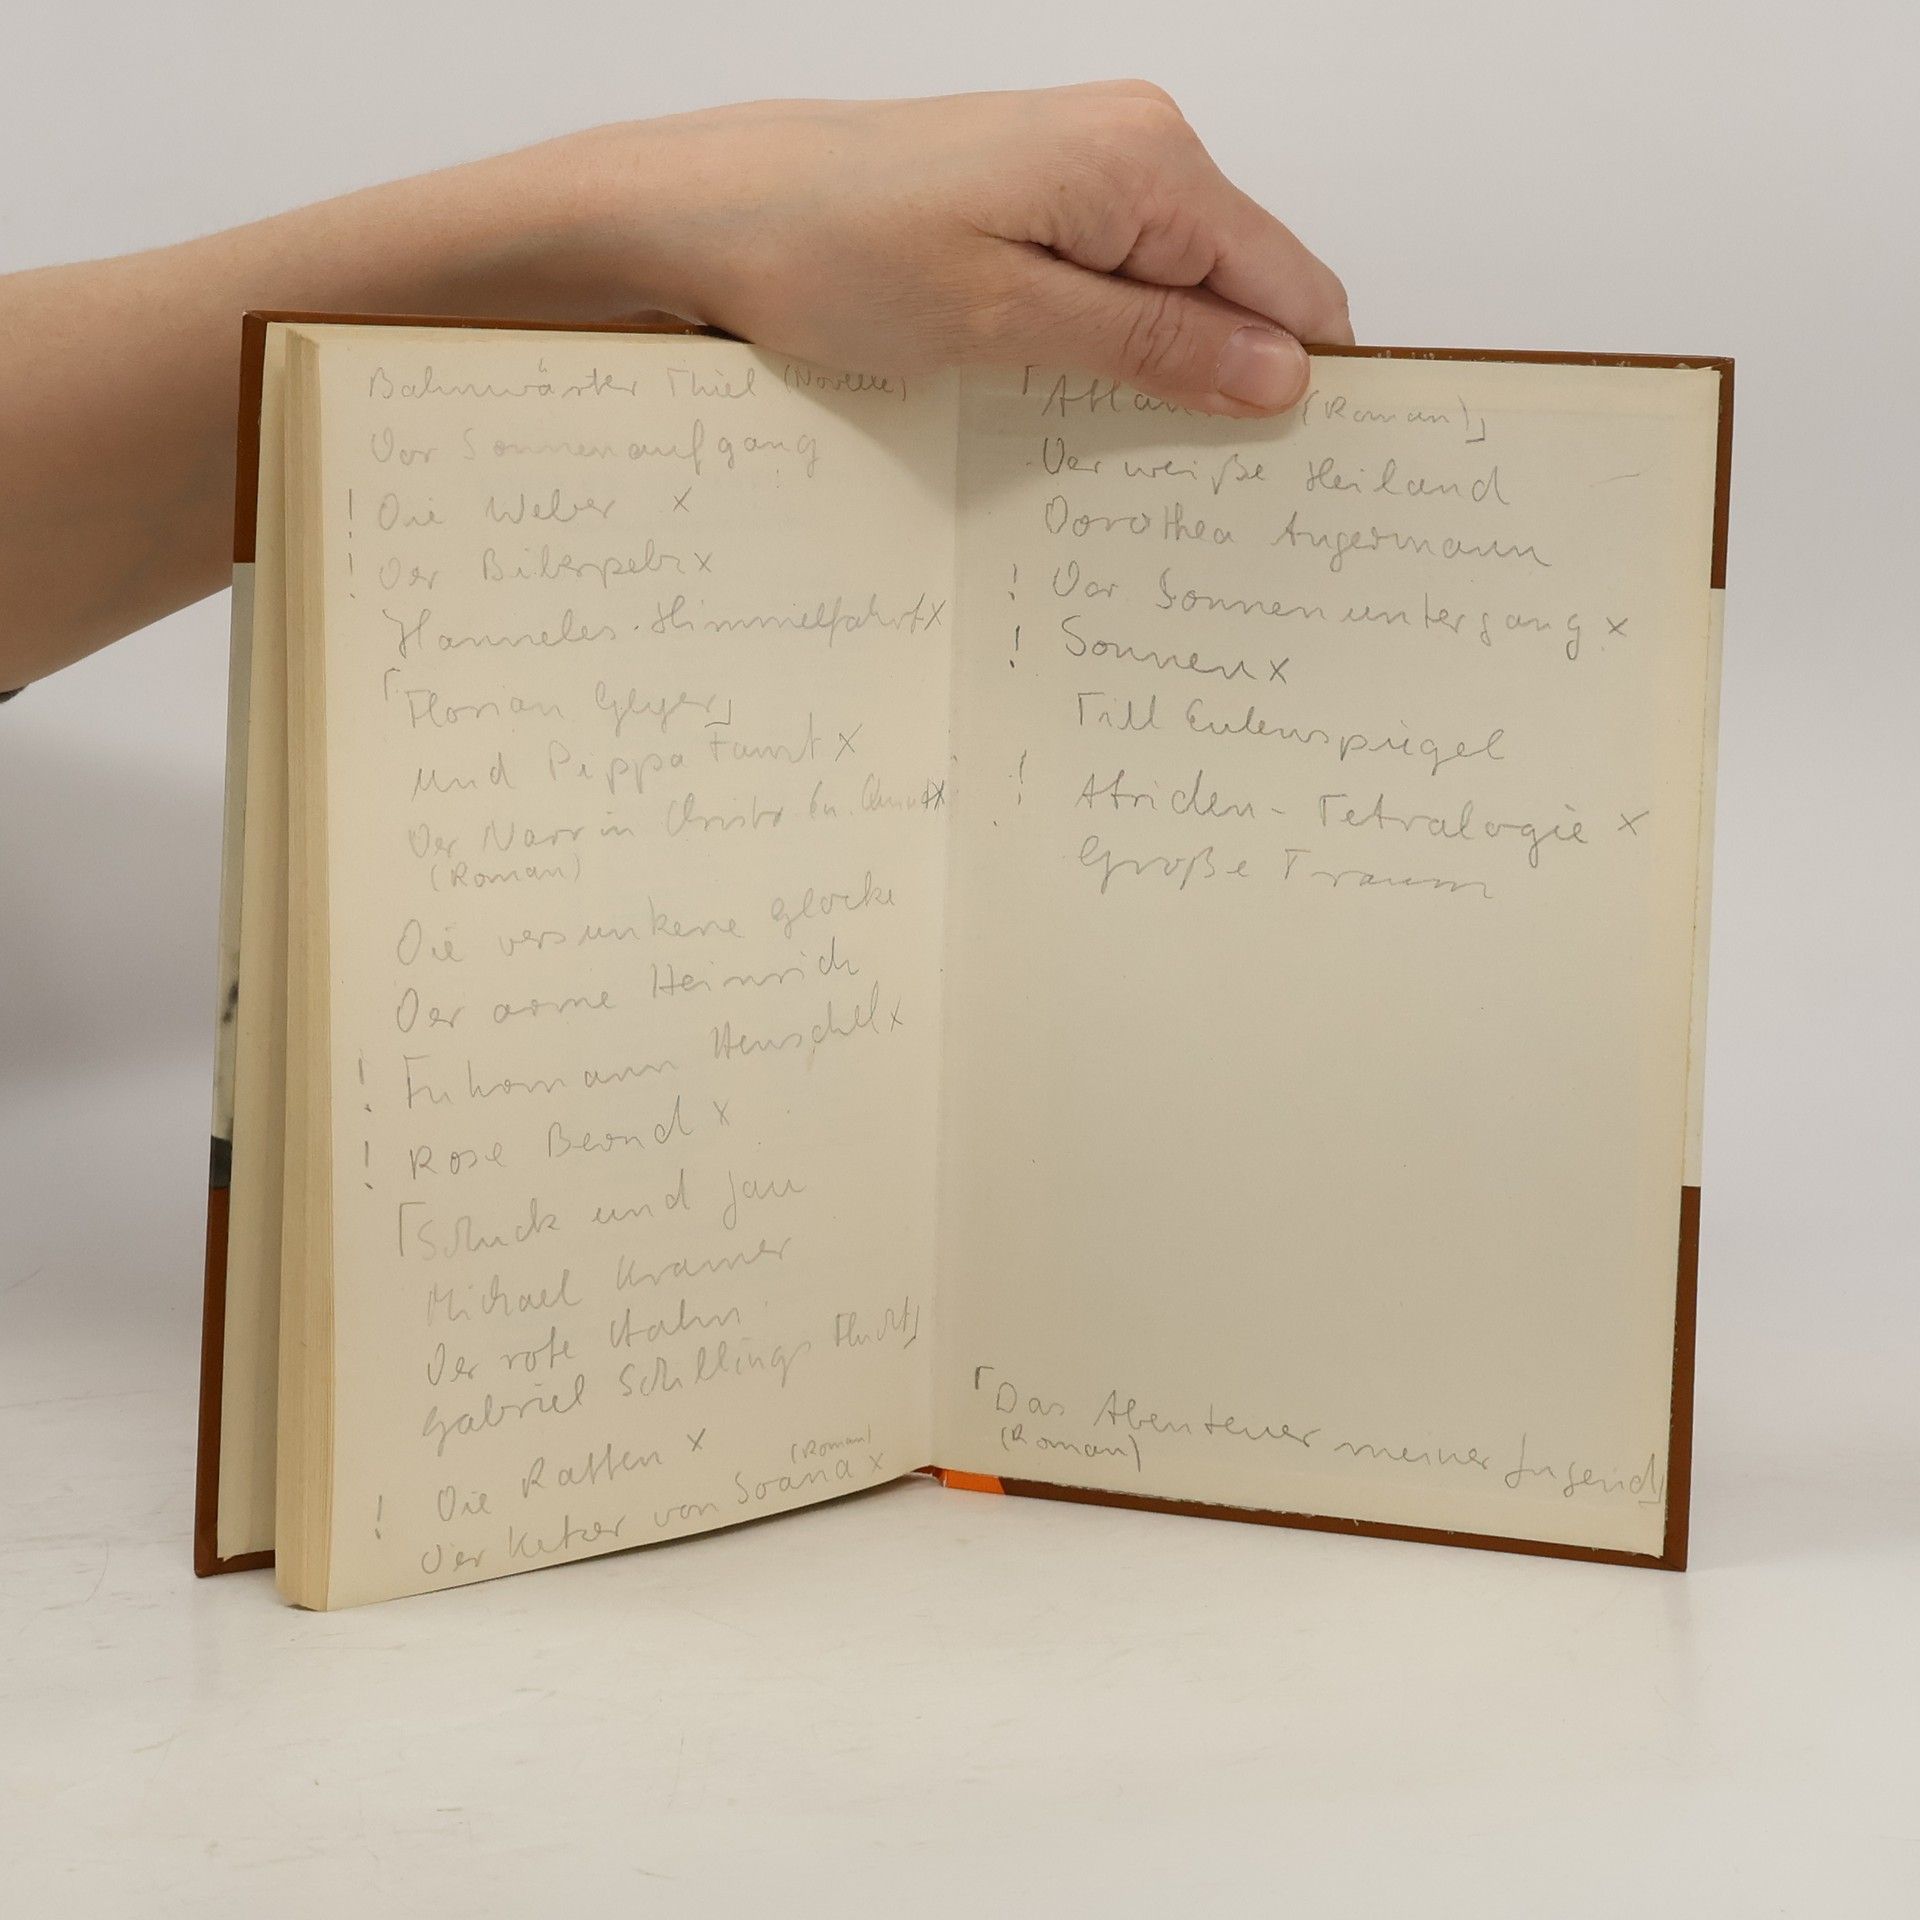 Bahnwärter Thiel (Novelle)
Vor Sonnenaufgang
! Die Weber x
! Der Biberpelz x
Hanneles Himmelfahrt x
「Florian Geyer」
und Pippa Tanzt x
Der Narr in Christo Em. Quint x
(Roman)
Die versunkene Glocke
Der arme Heinrich
! Fuhrmann Henschel x
! Rose Bernd x
「Schluck und Jau
Michael Kramer
Der rote Hahn
Gabriel Schillings Flucht」
! Die Ratten x
(Roman)
Der Ketzer von Soana x
「Atlan (Roman)」
Der weiße Heiland
Dorothea Angermann
! Vor Sonnenuntergang x
! Sonnen x
Till Eulenspiegel
! Atriden-Tetralogie x
Große Traum
「Das Abenteuer meiner Jugend」
(Roman)